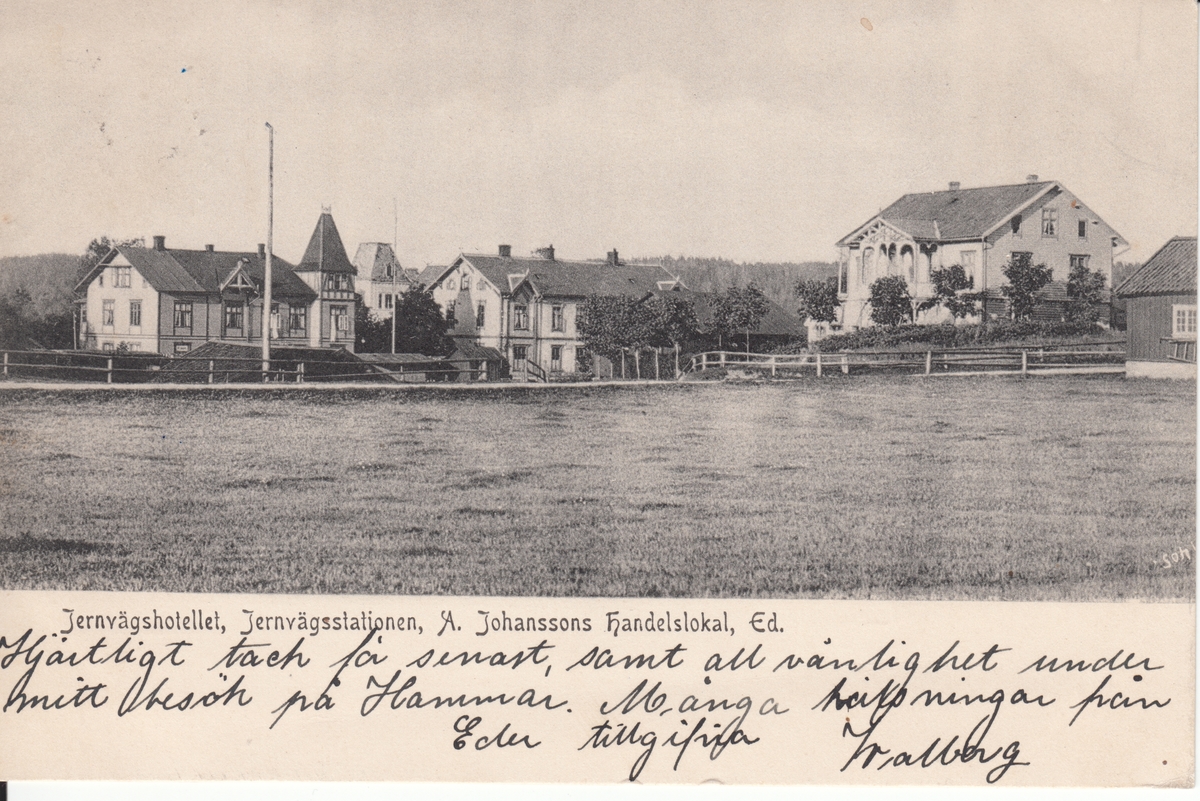 405
Jernvägshotellet, Jernvägsstationen, A. Johanssons Handelslokal, Ed.
Hjärtligt tack få senast, samt all vänlighet under
mitt besök på Hammar. Många hälsningar från
Eder tillgifna Walborg